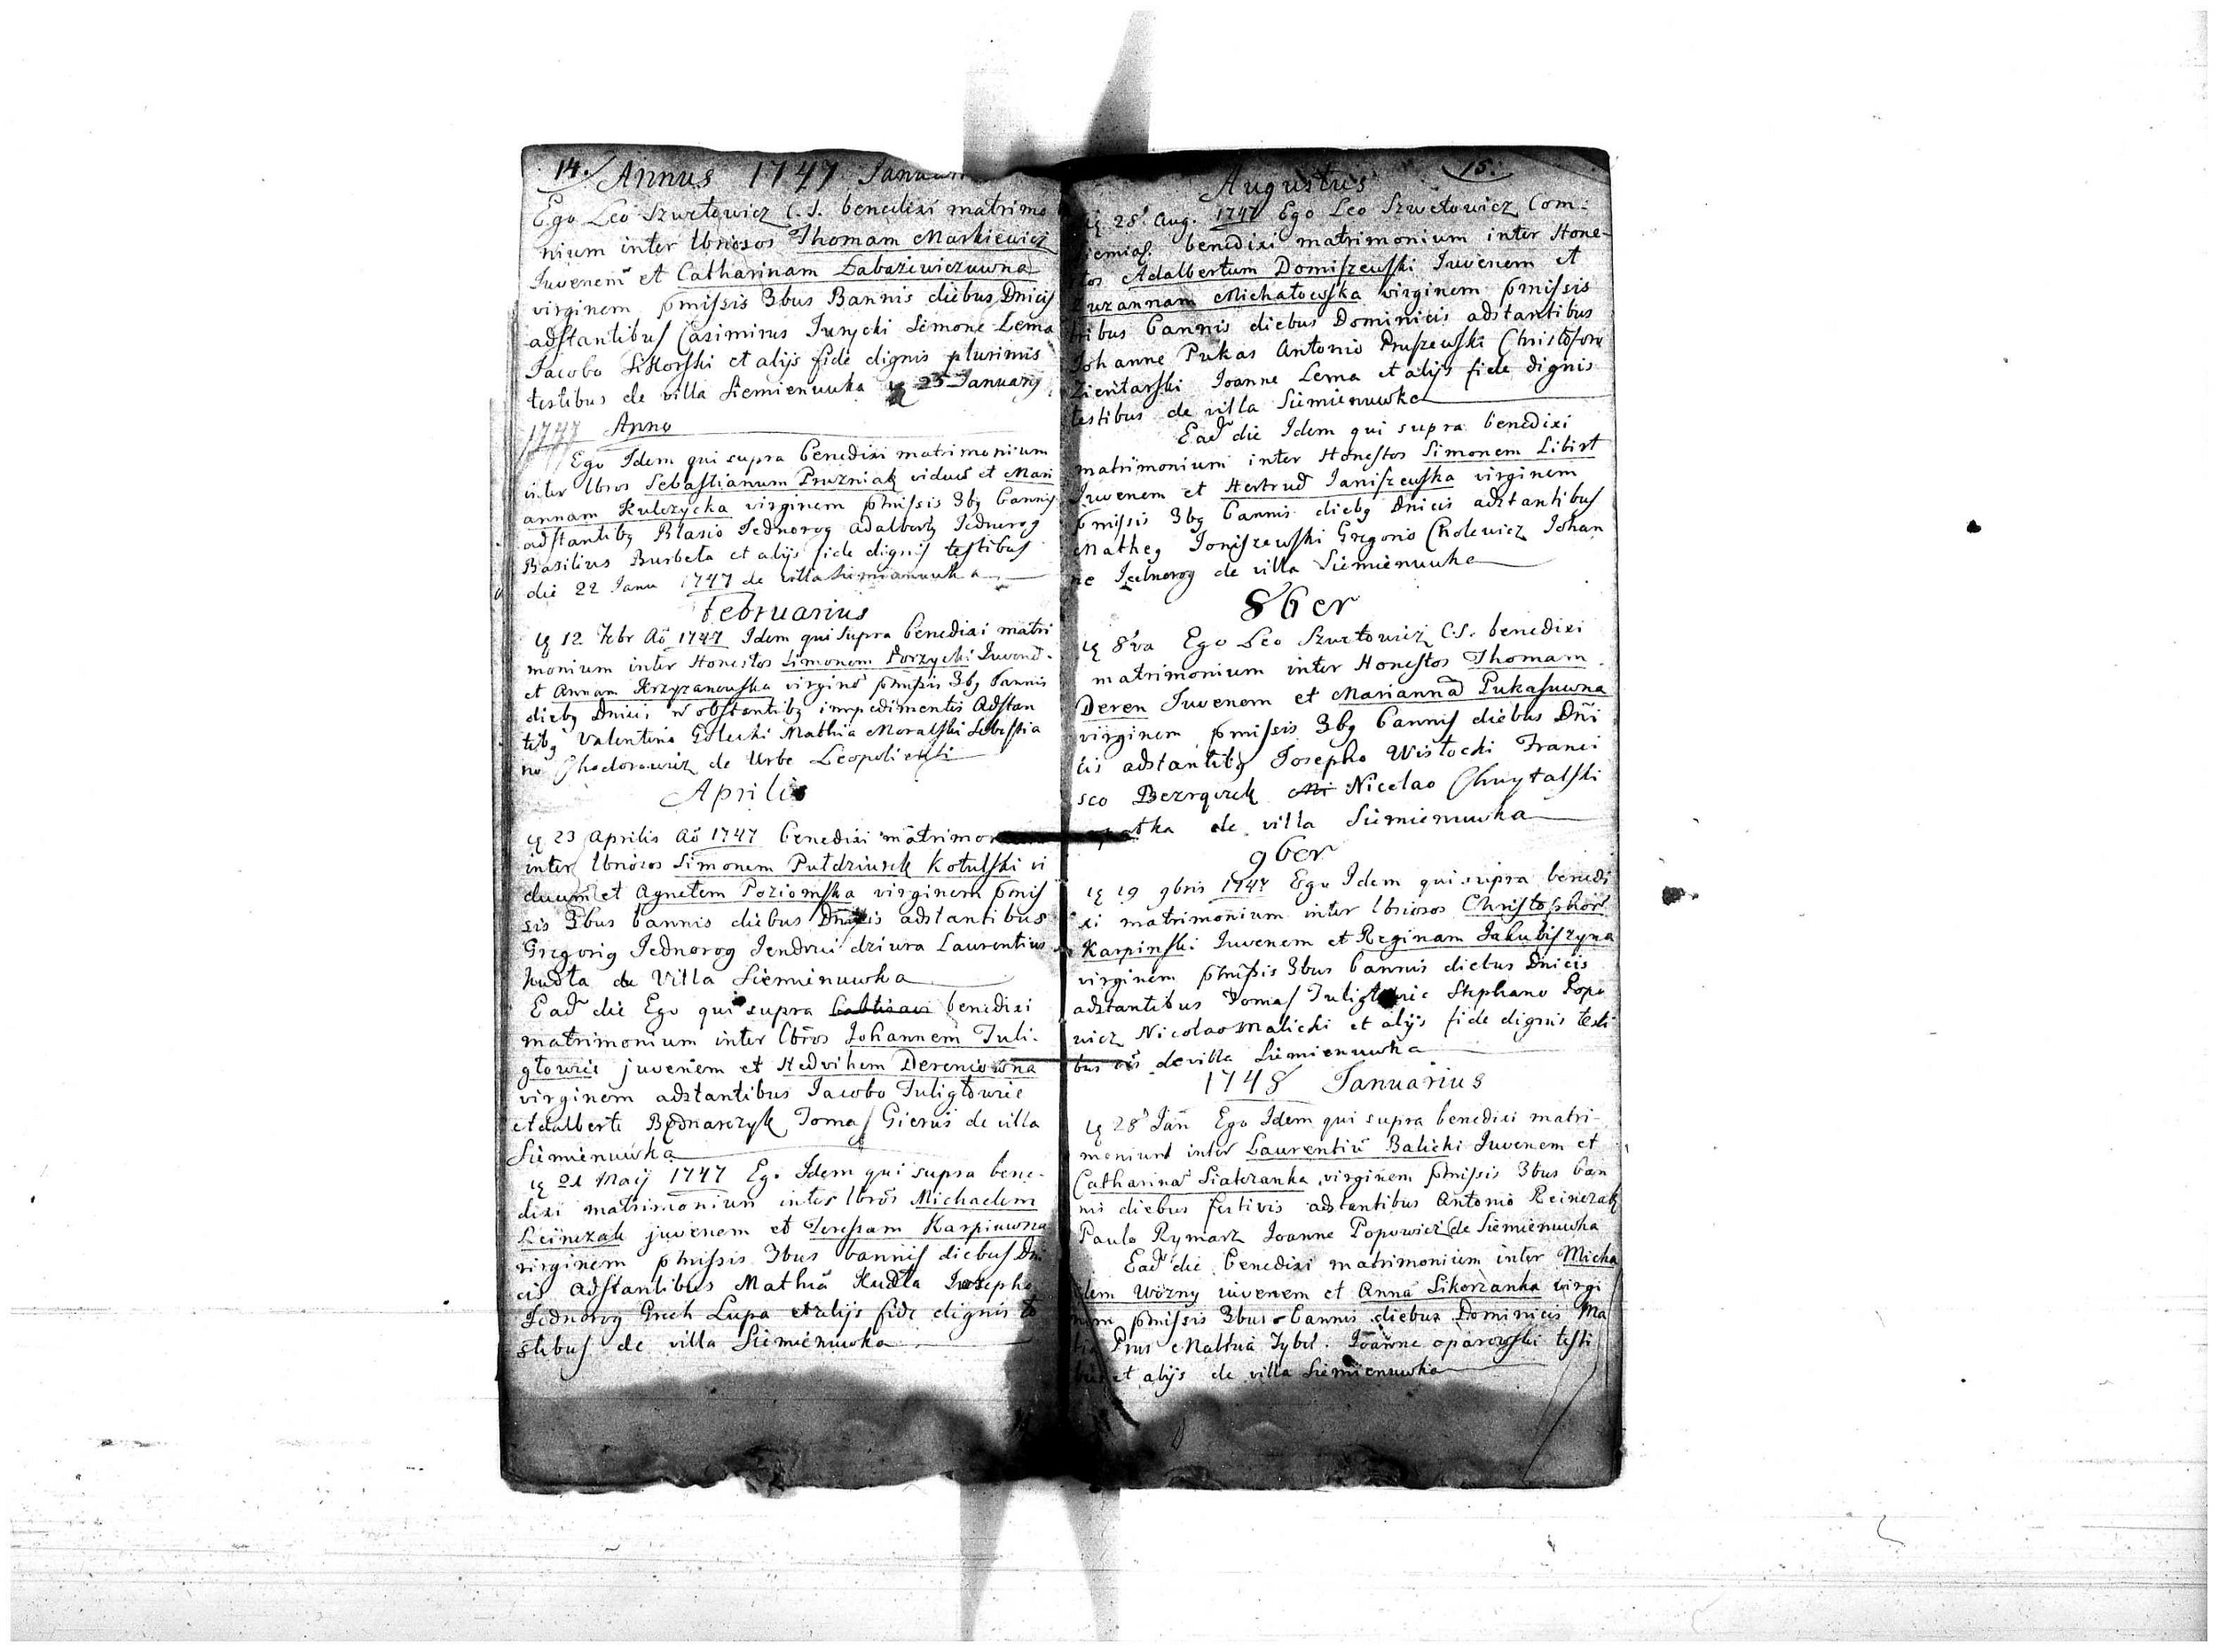 14. Annus 1747 Januari
Ego Leo Szurłowicz C. S. benedixi matrimo
nium inter lbriosos Thomam Markiewicz
Juvenem et Catharinam Łabaziewiczuwna
virginem pmissis 3bus Bannis diebus Dnicis
adstantibus Casimirus Jurycki Simone Lema
Jacobo Sikorski et alijs fide dignis plurimis
testibus de villa Siemienuwka 23 January
1747 Anno
Ego Idem qui supra benedixi matrimonium
inter lbros Sebastianum Pruzniak viduu et Mari
annam Kulczycka virginem pmissis 3bg bannis
adstantibg Blasio Jednorog Adalbertg Jednorog
Basilius Burbela et alijs fide dignis testibus
die 22 Janu 1747 de villa Siemianuwka
Februarius
12 Febr Ao 1747 Idem qui supra benedixi matri
monium inter Honestos Simonem Porzycki Juvene
et Annam Krzyzanowska virgine pmissis 3bg bannis
diebg Dnici n obstantibg impedimentis Adstan
tibg Valentino Golecki Mathia Moralski Sebastia
no Chodorowicz de Urbe Leopoli
Aprilis
23 Aprilis Ao 1747 benedixi matrimo
inter lbriosos Simonem Pułdziurek Kotulski vi
duum et Agnetem Poziomska virginem pmis
sis 3bus bannis diebus Dnicis adstantibus
Gregorig Jednorog Jendrui dziura Laurentius
Kudła de Villa Siemienuwka
Ead die Ego qui supra benedixi
matrimonium inter lbros Johannem Tuli-
głowic juvenem et Hedvihem Dereniowna
virginem adstantibus Jacobo Tuligłowic
Adalberti Bednarczyk Tomas Gierus de villa
Siemienuwka
21 Maij 1747 Ego Idem qui supra bene-
dixi matrimonium inter lbros Michaelem
Leinczak juvenem et Teressam Karpiuwna
virginem pmissis 3bus bannis diebus Dni
cis Adstantibus Mathia Kudła Josepho
Jednorog Grech Lupa et alijs fide dignis te
stibus de villa Siemienuwka
15.
Augustus
28 Aug. 1747 Ego Leo Szwełowicz Com:
Siemias. benedixi matrimonium inter Hone-
stos Adalbertum Domiszewski Juvenem et
Zuzannam Michałowska virginem pmissis
tribus bannis diebus Dominicis adstantibus
Johanne Pukas Antonio Pruszewski Christoforo
Zientarski Joanne Lema et alijs fide dignis
testibus de villa Siemienuwka
Ead die Idem qui supra benedixi
matrimonium inter Honestos Simonem Libirt
Juvenem et Hertrud Janiszewska virginem
pmissis 3bg bannis diebg Dnicis adstantibus
Matheg Joniszewski Gregorio Cholewicz Johan
ne Jednorog de villa Siemienuwka
8ber
8va Ego Leo Szurłowicz C.S. benedixi
matrimonium inter Honestos Thomam
Deren Juvenem et Marianna Pukasuwna
virginem pmissis 3bg bannis diebus Dni
cis adstantibg Josepho Wisłocki Franci
sco Bezrączek Nicolao Chwytalski
de villa Siemienuwka
9ber
19 9bris 1747 Ego Idem qui supra benedi
xi matrimonium inter lbriosos Christophor
Karpinski Juvenem et Reginam Jakubiszyna
virginem pmissis 3bus bannis diebus Dnicis
adstantibus Tomas Tuligłowic Stephano Popo
wicz Nicolao Malicki et alijs fide dignis testi
bus de villa Siemienuwka
1748 Januarius
28 Jan Ego Idem qui supra benedixi matri-
monium inter Laurentiu Balicki Juvenem et
Catharina Siakrzanka virginem pmissis 3bus ban
nis diebus festivis adstantibus Antonio Reinczak
Paulo Rymarz Joanne Popowicz de Siemienuwka
Ead die benedixi matrimonium inter Micha
elem Wozny iuvenem et Anna Sikorzanka virgi
nem pmissis 3bus bannis diebus Dominicis Ma
tia Prus Mathia Tybel. Joanne oparowski testi
bus et alijs de villa Siemienuwka